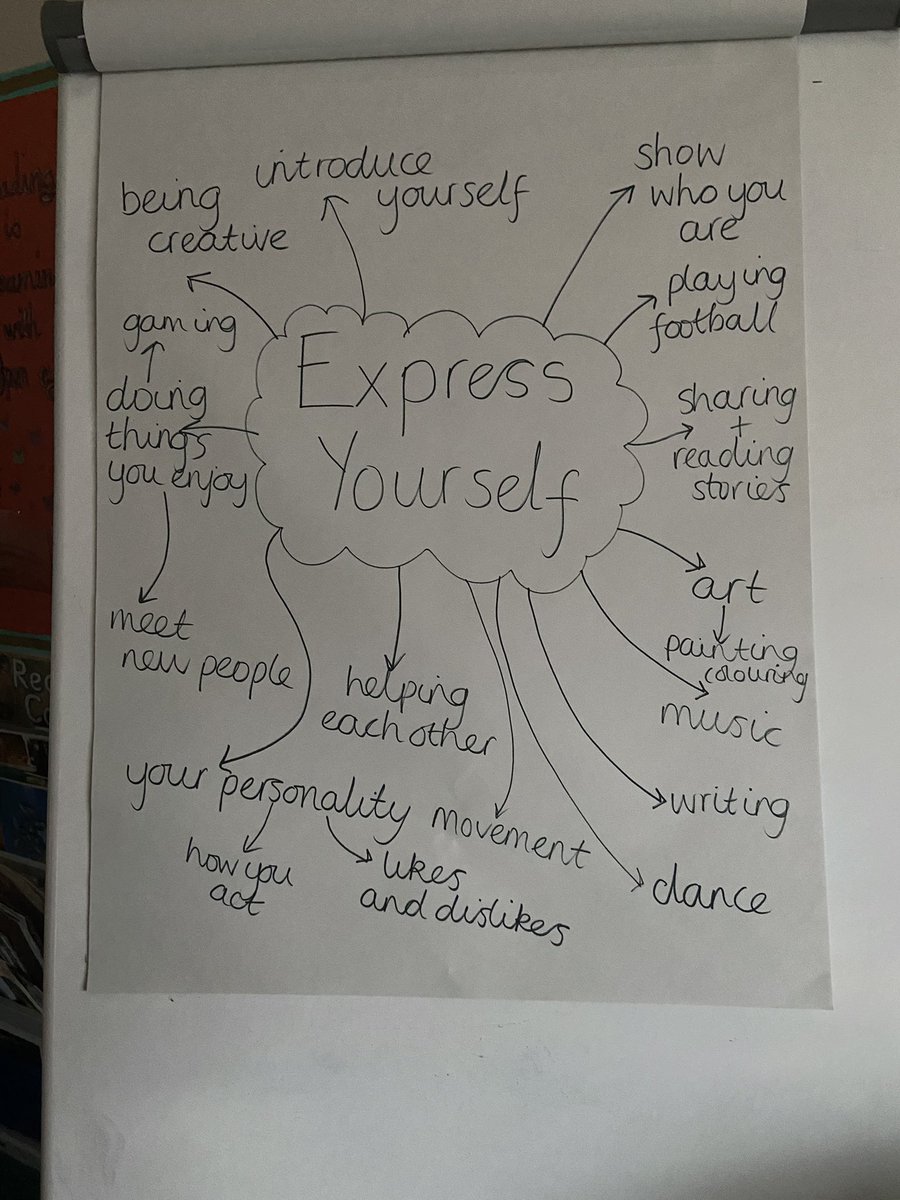 introduce
yourself
being
creative
show
who you
are
playing
football
gaming
doing
things
you enjoy
Express
Yourself
sharing
+
reading
stories
art
painting
colouring
music
meet
new people
helping
each other
your personality
movement
writing
how you
act
likes
and dislikes
dance